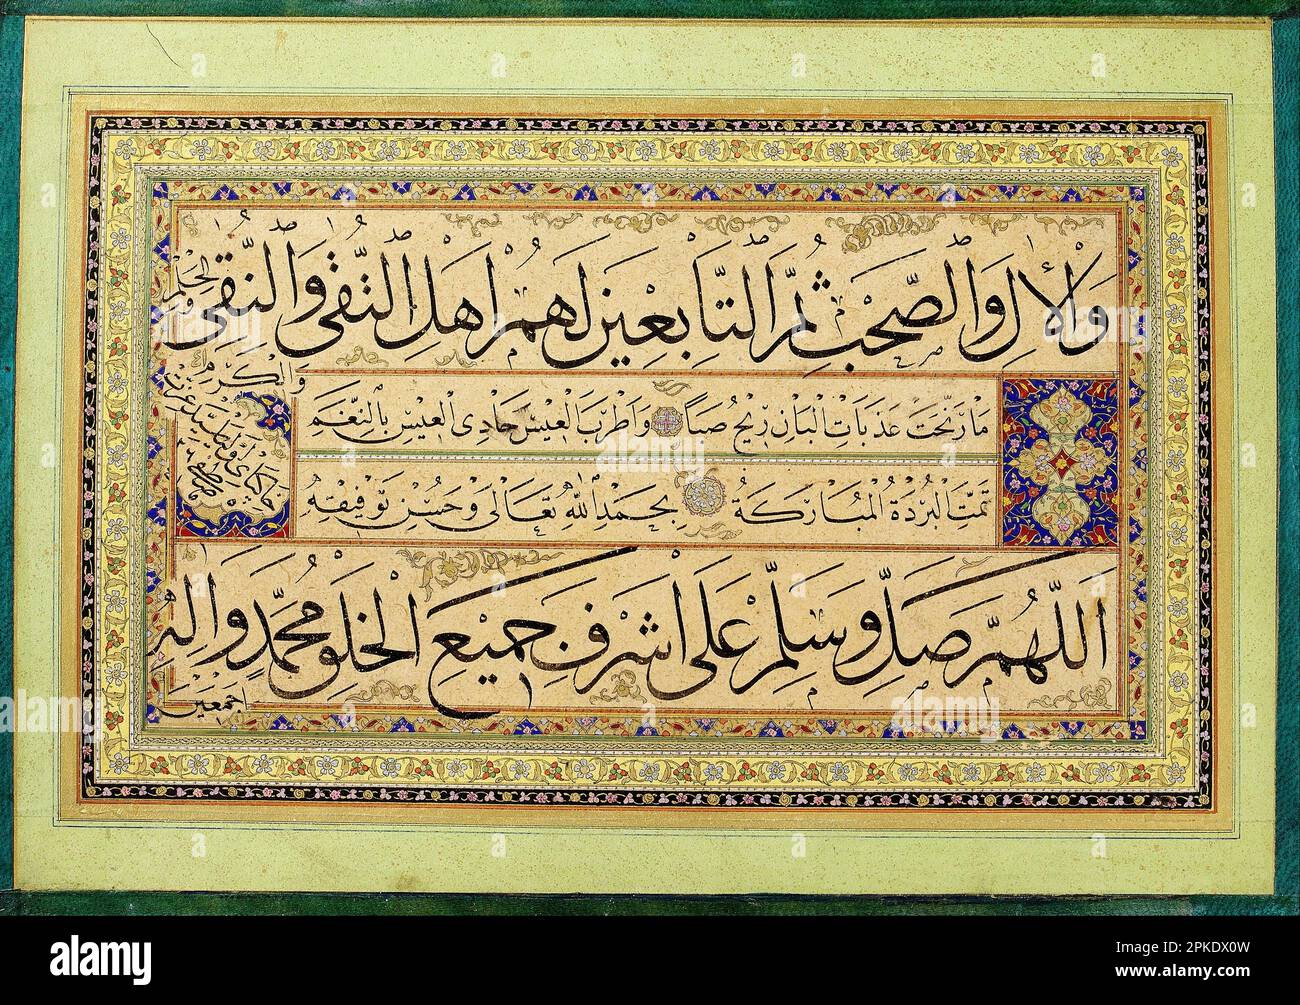 وَالْاٰلِ وَالصَّحْبِ ثُمَّ التَّابِعِينَ لَهُمْ اَهْلِ التُّقٰى وَالنَّقٰى وَالْحِلْمِ
وَالْكَرَمِ
مَا رَنَّحَتْ عَذَبَاتِ الْبَانِ رِيْحُ صَبًا وَاَطْرَبَ الْعِيْسَ حَادِى الْعِيْسِ بِالنَّغَمِ
تَمَّتِ الْبُرْدَةُ الْمُبَارَكَةُ بِحَمْدِ اللّٰهِ تَعَالَى وَحُسْنِ تَوْفِيْقِهِ
اَللّٰهُمَّ صَلِّ وَسَلِّمْ عَلَى اَشْرَفِ جَمِيْعِ الْخَلْقِ مُحَمَّدٍ وَاٰلِهِ
اجمعين
alamy
Image ID: 2PKDX0W
www.alamy.com